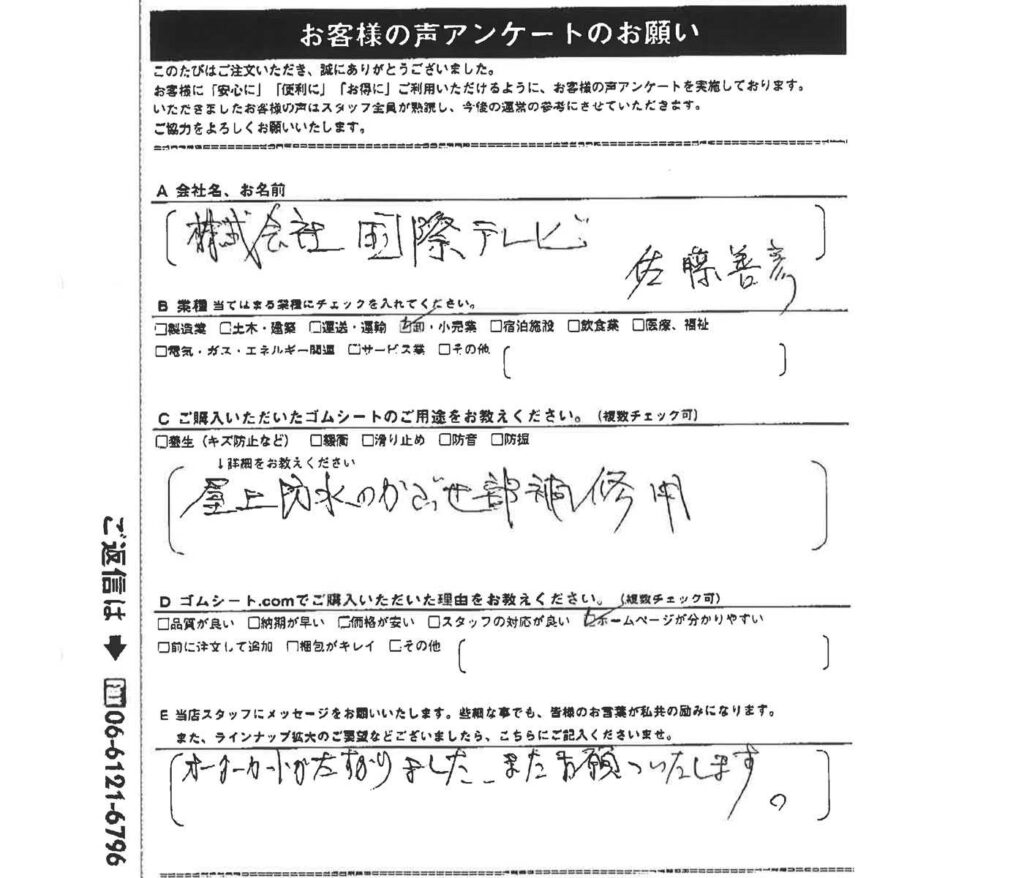 お客様の声アンケートのお願い
このたびはご注文いただき、誠にありがとうございました。
お客様に「安心に」「便利に」「お得に」ご利用いただけるように、お客様の声アンケートを実施しております。
いただきましたお客様の声はスタッフ全員が熟読し、今後の運営の参考にさせていただきます。
ご協力をよろしくお願いいたします。
A 会社名、お名前
株式会社 国際テレビ
佐藤善彦
B 業種 当てはまる業種にチェックを入れてください。
□製造業 □土木・建築 □運送・運輸 ☑卸・小売業 □宿泊施設 □飲食業 □医療、福祉
□電気・ガス・エネルギー関連 □サービス業 □その他
C ご購入いただいたゴムシートのご用途をお教えください。(複数チェック可)
□養生(キズ防止など) □緩衝 □滑り止め □防音 □防振
↓詳細をお教えください
屋上防水のかぶせ部補修用
D ゴムシート.comでご購入いただいた理由をお教えください。(複数チェック可)
□品質が良い □納期が早い □価格が安い □スタッフの対応が良い ☑ホームページが分かりやすい
□前に注文して追加 □梱包がキレイ □その他
E 当店スタッフにメッセージをお願いいたします。些細な事でも、皆様のお言葉が私共の励みになります。
また、ラインナップ拡大のご要望などございましたら、こちらにご記入くださいませ。
オーダーカットがたすかりました、またお願いいたします。
ご返信は ➡ FAX 06-6121-6796